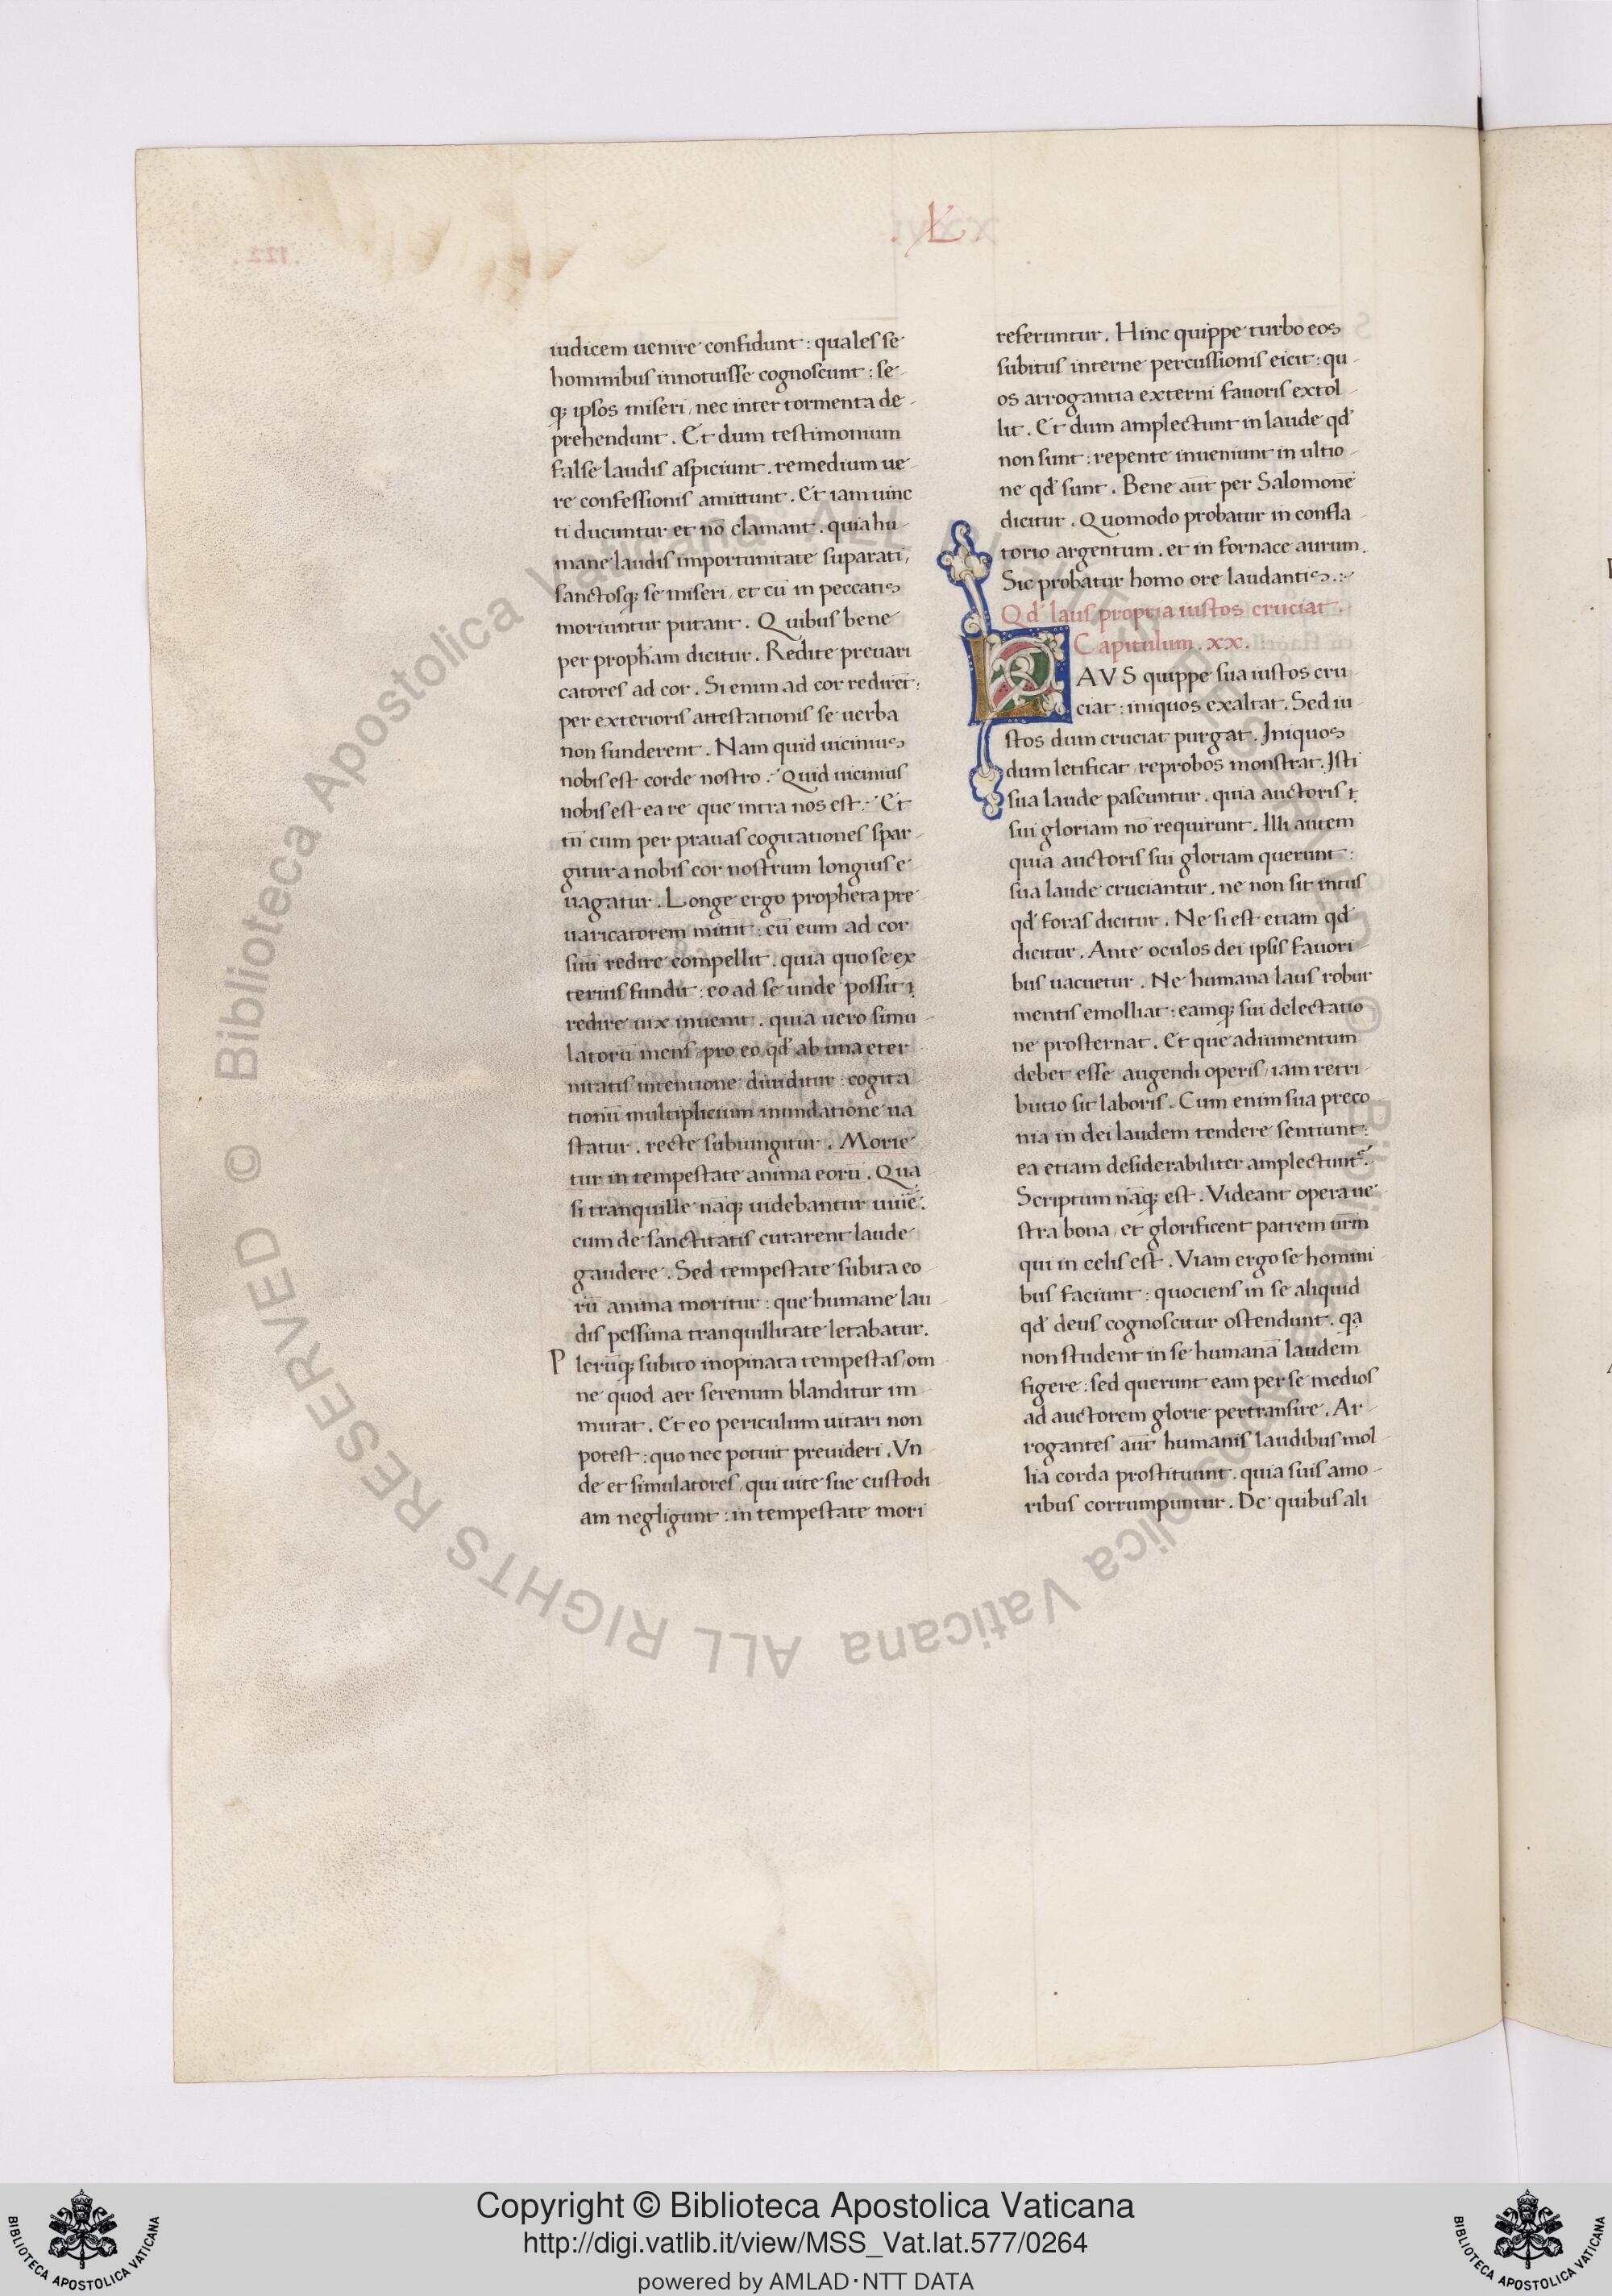 L
iudicem uenire confidunt : quales se
hominibus innotuisse cognoscunt : se-
q; ipsos miseri, nec inter tormenta de-
prehendunt . Et dum testimonium
false laudis aspiciunt . remedium ue-
re confessionis amittunt . Et iam uinc
ti ducuntur et nō clamant . quia hu-
mane laudis importunitate suparati,
sanctosq; se miseri, et cū in peccatis
moriuntur putant . Quibus bene
per propħam dicitur . Redite preuari
catores ad cor . Si enim ad cor redirēt :
per exterioris attestationis se uerba
non funderent . Nam quid uicinius
nobis est corde nostro . Quid uicinius
nobis est ea re que intra nos est . Et
tn̄ cum per prauas cogitationes spar-
gitur a nobis cor nostrum longius e-
uagatur . Longe ergo propheta pre-
uaricatorem mittit : cū eum ad cor
suū redire compellit . quia quo se ex-
terius fundit : eo ad se unde possit
redire uix inuenit . quia uero simu-
latorū mens, pro eo qd' ab una eter-
nitatis intentione diuiditur : cogita-
tionū multiplicium inundatione ua-
statur . recte subiungitur . Morie-
tur in tempestate anima eorū . Qua
si tranquille nāq; uidebantur uiuē .
cum de sanctitatis curarent laude
gaudere . Sed tempestate subita eo
rū anima moritur : que humane lau
dis pessima tranquillitate letabatur .
Plerūq; subito inopinata tempestas, om-
ne quod aer serenum blanditur im-
mutat . Et eo periculum uitari non
potest : quo nec potuit preuideri . Vn-
de et simulatores, qui uite sue custodi
am negligunt : in tempestate mori
referuntur . Hinc quippe turbo eos
subitus interne percussionis eicit : qu-
os arrogantia externi fauoris extol-
lit . Et dum amplectunt in laude qd'
non sunt : repente inueniunt in ultio-
ne qd' sunt . Bene aūt per Salomonē
dicitur . Quomodo probatur in confla-
torio argentum . et in fornace aurum .
Sic probatur homo ore laudantis . : ~
Qd' laus propria iustos cruciat .
Capitulum . xx .
LAVS quippe sua iustos cru
ciat : iniquos exaltat . Sed iu-
stos dum cruciat purgat . Iniquos
dum letificat, reprobos monstrat . Isti
sua laude pascuntur . quia auctoris
sui gloriam nō requirunt . Illi autem
quia auctoris sui gloriam querunt :
sua laude cruciantur . ne non sit intus
qd' foras dicitur . Ne si est etiam qd'
dicitur . Ante oculos dei ipsis fauori-
bus uacuetur . Ne humana laus robur
mentis emolliat : eamq; sui delectatio
ne prosternat . Et que adiumentum
debet esse augendi operis, iam retri-
butio sit laboris . Cum enim sua preco
nia in dei laudem tendere sentiunt :
ea etiam desiderabiliter amplectunt .
Scriptum nāq; est . Videant opera ue-
stra bona, et glorificent patrem ur̄m
qui in celis est . Viam ergo se homini-
bus faciunt : quociens in se aliquid
qd' deus cognoscitur ostendunt . qa
non student in se humanā laudem
figere : sed querunt eam per se medios
ad auctorem glorie pertransire . Ar-
rogantes aūt humanis laudibus mol-
lia corda prostituunt . quia suis amo-
ribus corrumpuntur . De quibus ali
© Biblioteca Apostolica Vaticana ALL RIGHTS RESERVED
Copyright © Biblioteca Apostolica Vaticana
http://digi.vatlib.it/view/MSS_Vat.lat.577/0264
powered by AMLAD·NTT DATA
BIBLIOTECA APOSTOLICA VATICANA
BIBLIOTECA APOSTOLICA VATICANA